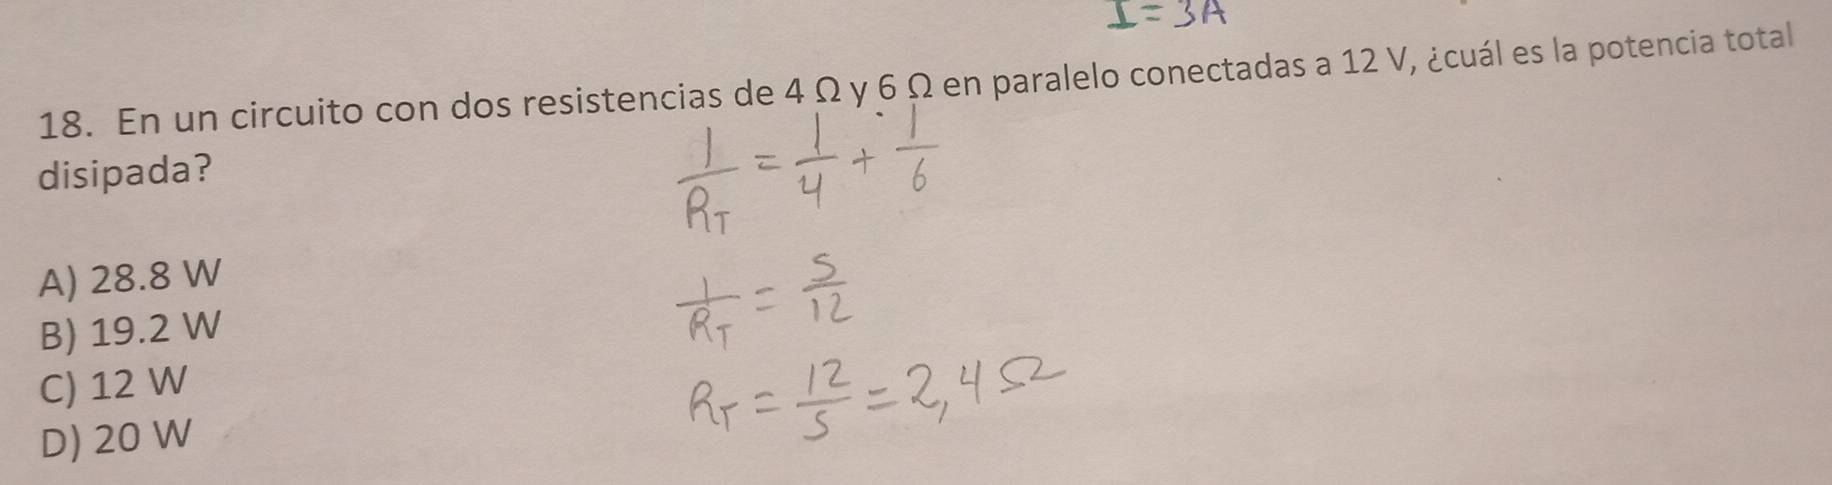 I = 3A
18. En un circuito con dos resistencias de 4 Ω y 6 Ω en paralelo conectadas a 12 V, ¿cuál es la potencia total
disipada?
1/R_T = 1/4 + 1/6
A) 28.8 W
1/R_T = 5/12
B) 19.2 W
C) 12 W
R_T = 12/5 = 2,4 Ω
D) 20 W